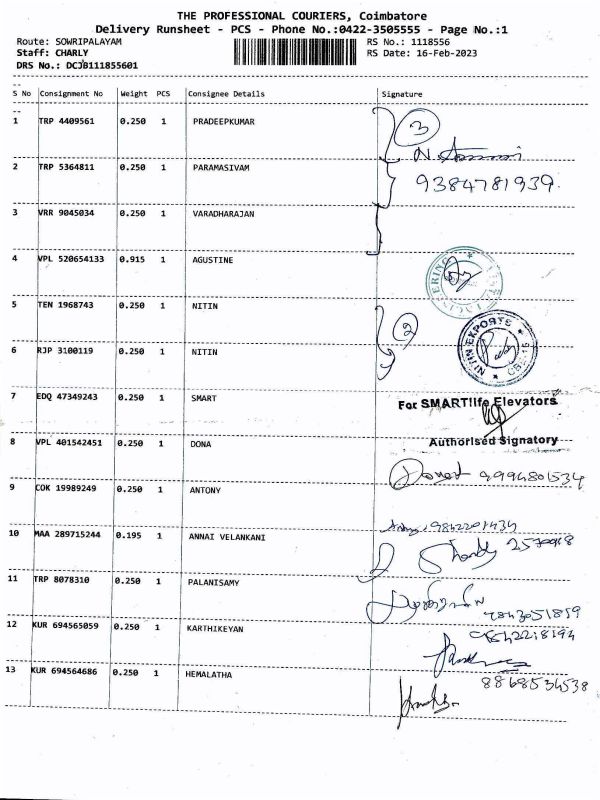 THE PROFESSIONAL COURIERS, Coimbatore
Delivery Runsheet - PCS - Phone No.:0422-3505555 - Page No.:1
Route: SOWRIPALAYAM RS No.: 1118556
Staff: CHARLY RS Date: 16-Feb-2023
DRS No.: DCJB111855601
S No Consignment No Weight PCS Consignee Details Signature
1 TRP 4409561 0.250 1 PRADEEPKUMAR
3
2 TRP 5364811 0.250 1 PARAMASIVAM
9384781939
3 VRR 9045034 0.250 1 VARADHARAJAN
4 VPL 520654133 0.915 1 AGUSTINE
ENGINEERING
5 TEN 1968743 0.250 1 NITIN
2
NITIN EXPORTS
6 RJP 3100119 0.250 1 NITIN
7 EDQ 47349243 0.250 1 SMART
For SMARTlife Elevators
Authorised Signatory
8 VPL 401542451 0.250 1 DONA
9994801534
9 COK 19989249 0.250 1 ANTONY
10 MAA 289715244 0.195 1 ANNAI VELANKANI
11 TRP 8078310 0.250 1 PALANISAMY
12 KUR 694565059 0.250 1 KARTHIKEYAN
13 KUR 694564686 0.250 1 HEMALATHA
8868534538